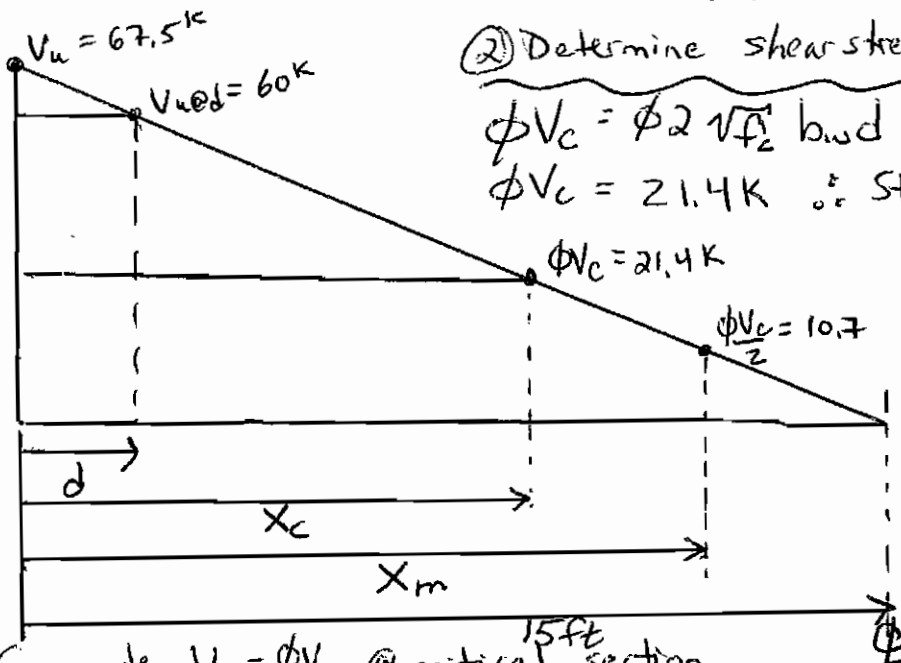 Vu = 67.5ᵏ
Vu@d = 60ᴷ
② Determine shear stre
ϕVc = ϕ2 √f'c bwd
ϕVc = 21.4K ∴ St
ϕVc = 21.4K
ϕVc/2 = 10.7
d
Xc
Xm
15ft
Vu = ϕVn @ critical section